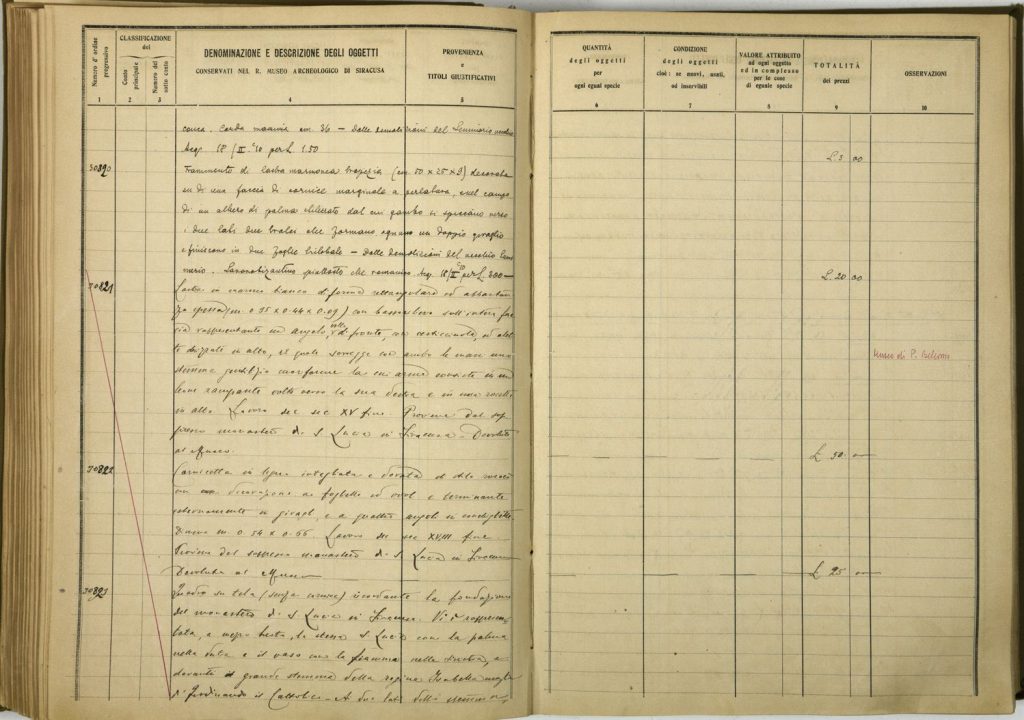 Numero d'ordine progressivo
CLASSIFICAZIONE
dei
Conto principale
Numero del sotto conto
DENOMINAZIONE E DESCRIZIONE DEGLI OGGETTI
CONSERVATI NEL R. MUSEO ARCHEOLOGICO DI SIRACUSA
PROVENIENZA
e
TITOLI GIUSTIFICATIVI
1 2 3 4 5
corda massima cm 36 – Dalle demolizioni del Seminario vecchio
Acq. 18/II 910 per L. 1.50
30820
Frammento di lastra marmorea trapezia (cm 50 x 25 x 9) decorata
su di una faccia di cornice marginale a perlatura, e nel campo
di un albero di palma dal cui gambo si spiccano verso
i due lati due tralci che formano ognuno un doppio giraglio
e finiscono in due foglie trilobate – Dalle demolizioni del vecchio Semi
nario. Lavoro bizantino piuttosto che romanico. Acq. 18/II 910 per L. 200 –
30821
Lastra in marmo bianco di forma rettangolare ed abbastan
za spessa (m. 0.35 x 0.44 x 0.09) con bassorilievo sull'intera fac
cia rappresentante un angelo, volto di fronte, con ed ali
in alto, il quale sorregge con ambo le mani uno
stemma gentilizio la cui arme consiste in un
leone rampante volto verso la sua destra e in una
in alto. Lavoro del sec XV fine. Proviene dal sop
presso monastero di S Lucia in Siracusa. Devoluto
al Museo.
30822
Cornicetta in legno intagliata e dorata di stile rococò
con decorazione a foglette ed ovoli e terminante
esternamente in giragli, e a quattro angoli in
Diam m. 0.54 x 0.66. Lavoro del sec XVIII fine.
Proviene dal soppresso monastero di S Lucia in Siracusa
Devoluta al Museo
30823
Quadro su tela (senza cornice) ricordante la fondazione
del monastero di S Lucia in Siracusa. Vi è rappresen
tata, a mezzo busto, la stessa S Lucia con la palma
nella destra e il vaso con la fiamma nella sinistra, e
davanti il grande stemma della regina Isabella moglie
di Ferdinando il Cattolico. A due lati dello stemma
QUANTITÀ
degli oggetti
per
ogni egual specie
CONDIZIONE
degli oggetti
cioè: se nuovi, usati,
od inservibili
VALORE ATTRIBUITO
ad ogni oggetto
ed in complesso
per le cose
di eguale specie
TOTALITÀ
dei prezzi
OSSERVAZIONI
6 7 8 9 10
L. 5 00
L. 20 00
Museo di P. Bellomo
L 50 —
L 25 —